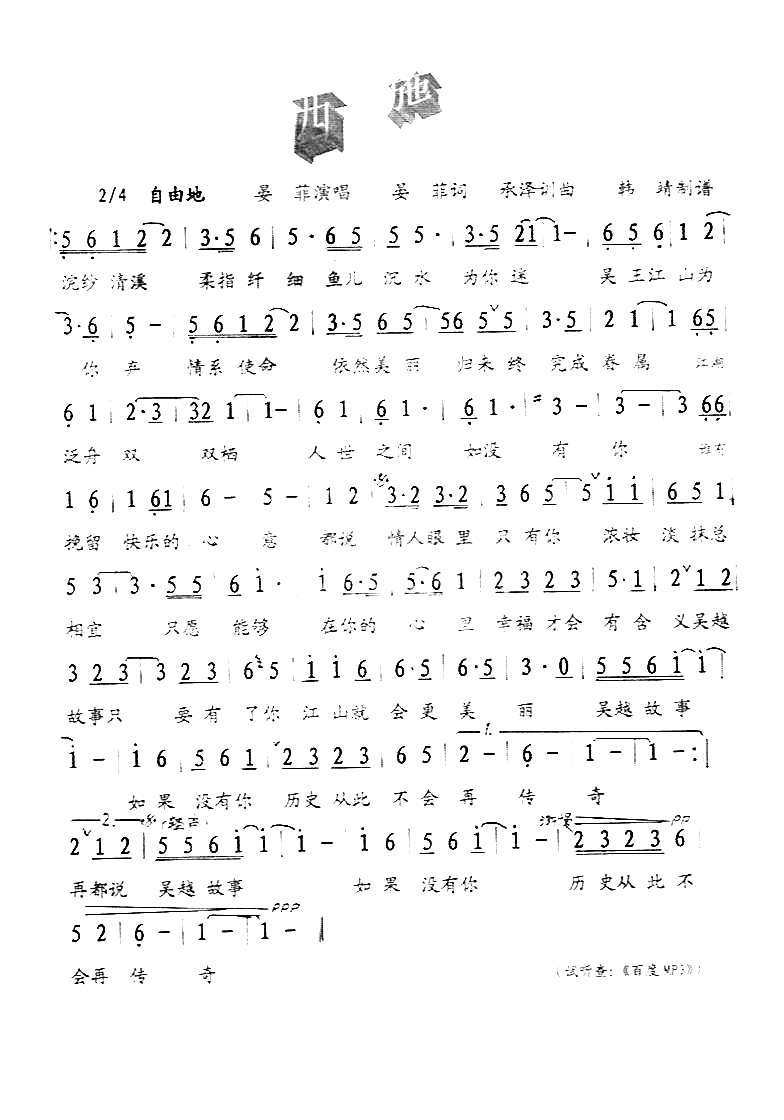 西 施
2/4 自由地 晏 菲演唱 晏 菲词 承泽训曲 韩 靖制谱
5 6 1 2 2 | 3·5 6 | 5· 6 5 | 5 5· | 3·5 2 1 | 1 - | 6 5 6 | 1 2 |
浣纱 清溪 柔指 纤 细 鱼儿 沉 水 为你 迷 吴 王江 山为
3·6 | 5 - | 5 6 1 2 2 | 3·5 6 5 | 5 6 5 5 | 3·5 | 2 1 | 1 6 5 |
你 弃 情系 使命 依然美 丽 归来 终 完成 眷 属 江湖
6 1 | 2·3 | 3 2 1 | 1 - | 6 1 | 6 1· | 6 1· | 3 - | 3 - | 3 6 6 |
泛舟 双 双栖 人 世 之间 如没 有 你 谁有
1 6 | 1 6 1 | 6 - | 5 - | 1 2 | 3·2 3·2 | 3 6 5 | 5 i i | 6 5 1 |
挽留 快乐的 心 意 都说 情人眼 里 只 有你 浓妆 淡 抹总
5 3 | 3· 5 5 | 6 i· | i 6·5 | 5·6 1 | 2 3 2 3 | 5·1 | 2 1 2 |
相宜 只愿 能够 在你的 心 里 幸福 才会 有 含 义吴越
3 2 3 | 3· 3 2 3 | 6 5 | i i 6 | 6·5 | 6·5 | 3·0 | 5 5 6 i | i |
故事只 要 有 了你 江山就 会更 美 丽 吴越 故 事
i - | i 6 | 5 6 1 | 2 3 2 3 | 6 5 | 1. 2 - | 6 - | 1 - | 1 - :|
如 果 没有你 历史 从此 不 会 再 传 奇
2. 渐 (轻声) 渐慢 pp
2 1 2 | 5 5 6 i i | i - | i 6 | 5 6 i | i - | 2 3 2 3 6 |
再都说 吴越 故事 如 果 没有你 历 史从 此 不
ppp
5 2 | 6 - | 1 - | 1 - ‖
会再 传 奇
(试听查:《百度MP3》)